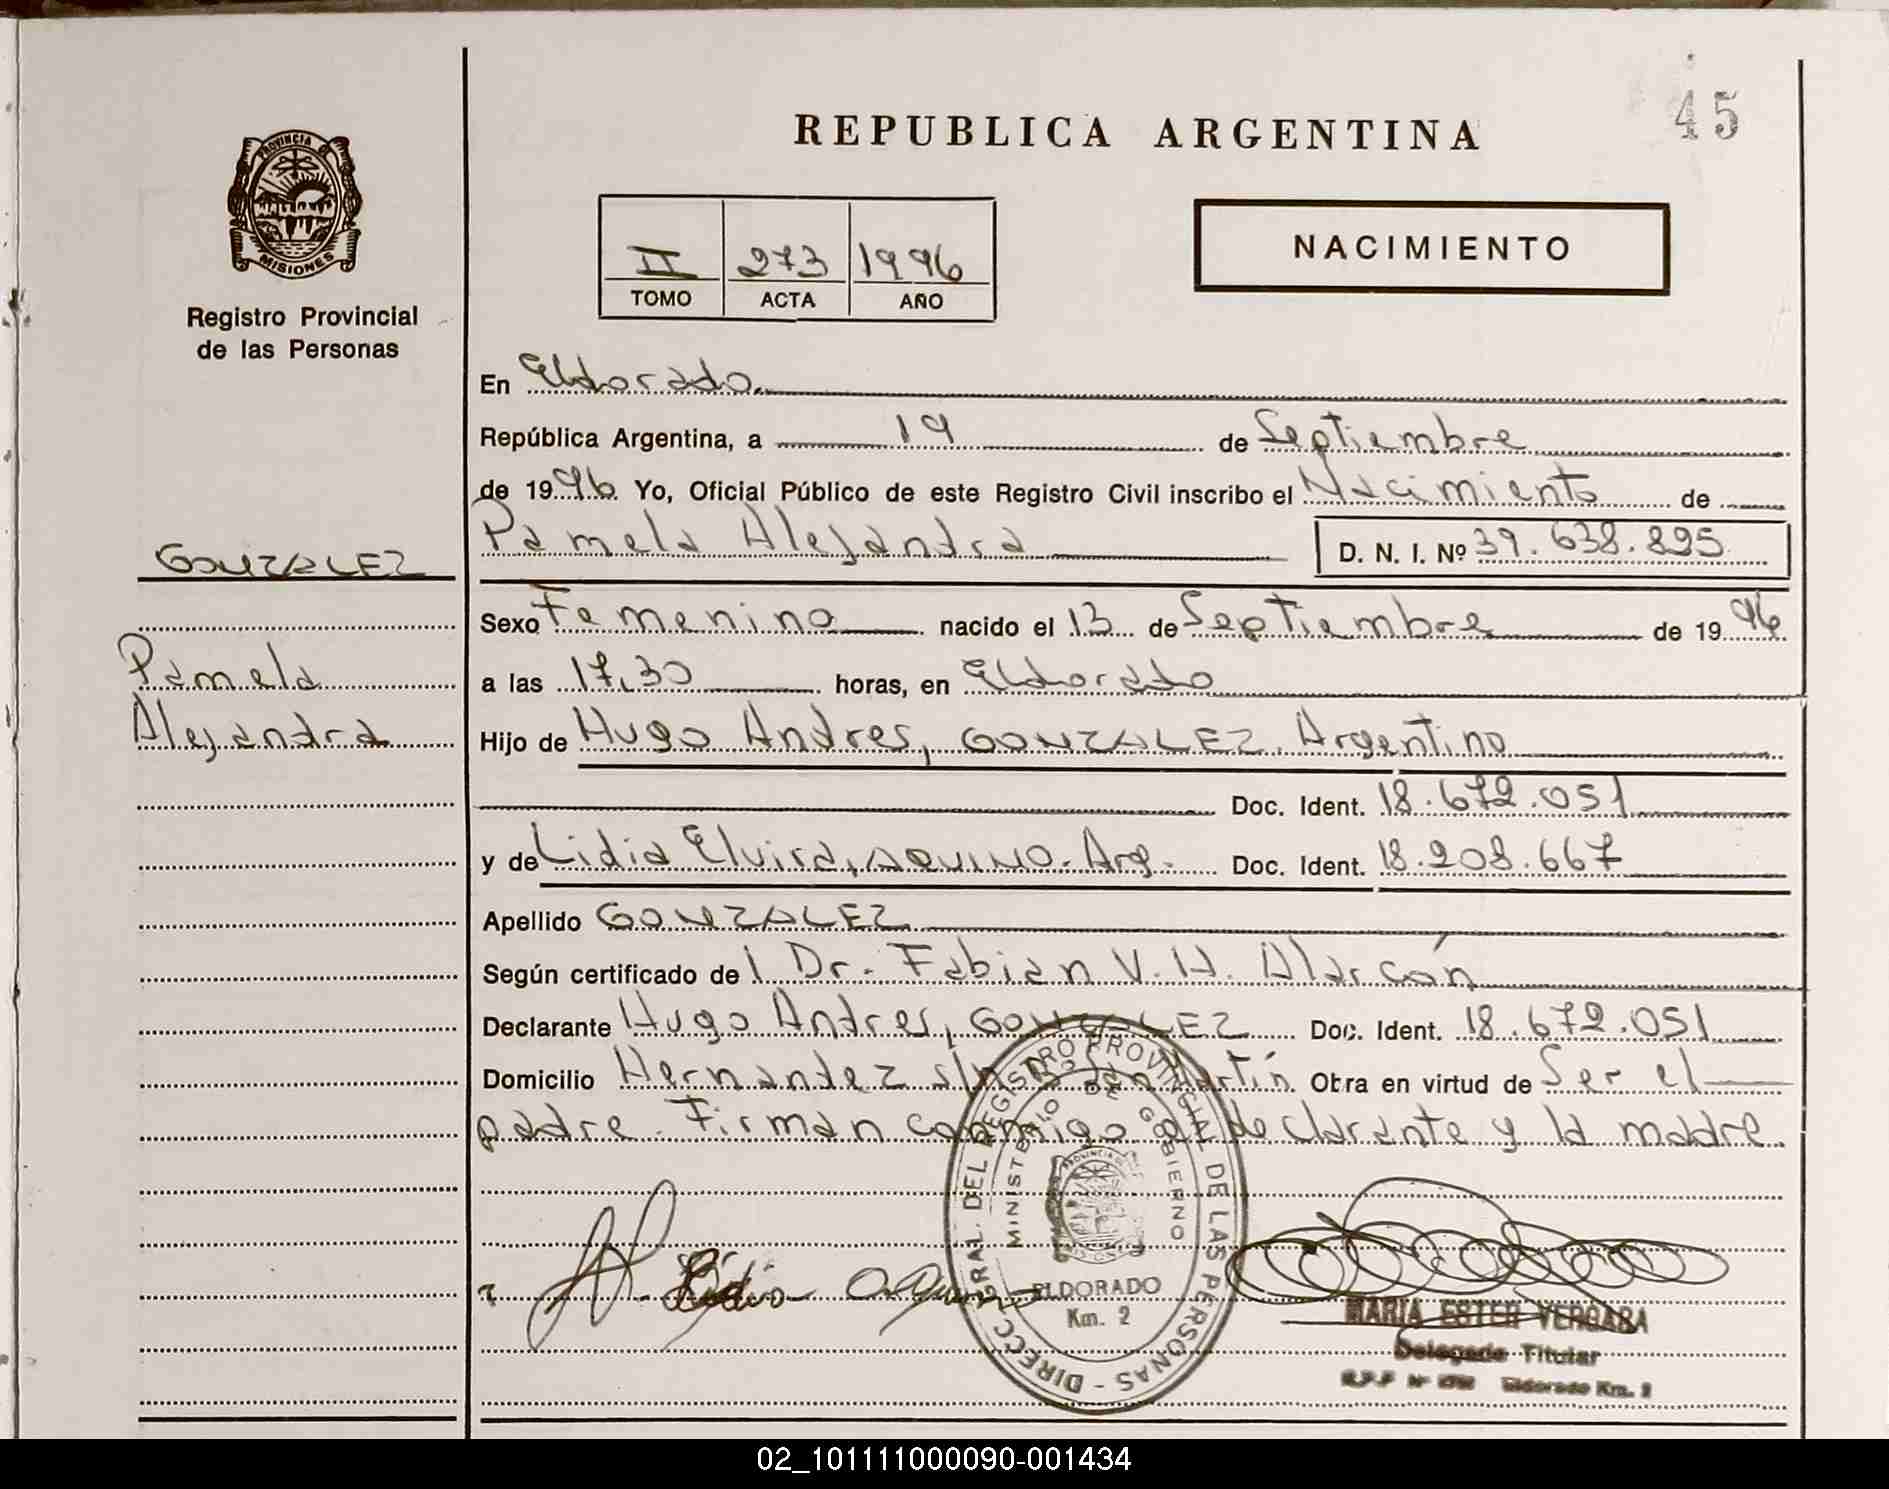 45
REPUBLICA ARGENTINA
PROVINCIA DE
MISIONES
Registro Provincial
de las Personas
II 273 1996
TOMO ACTA AÑO
NACIMIENTO
En Eldorado
República Argentina, a 19 de Septiembre
de 1996 Yo, Oficial Público de este Registro Civil inscribo el Nacimiento de
GONZALEZ
Pamela Alejandra D. N. I. Nº 39.638.895
Sexo Femenino nacido el 13 de Septiembre de 1996
Pamela
a las 17,30 horas, en Eldorado
Alejandra
Hijo de Hugo Andres, GONZALEZ. Argentino
Doc. Ident. 18.672.051
y de Lidia Elvira, AQUINO. Arg. Doc. Ident. 18.208.667
Apellido GONZALEZ
Según certificado del Dr. Fabian V. H. Alarcón
Declarante Hugo Andres, GONZALEZ Doc. Ident. 18.672.051
Domicilio Hernandez s/n San Martín Obra en virtud de Ser el
padre. Firman conmigo el declarante y la madre.
DIRECC. GRAL. DEL REGISTRO PROVINCIAL DE LAS PERSONAS -
MINISTERIO DE GOBIERNO
ELDORADO
Km. 2
Lidia Aquino
MARIA ESTER VERGARA
Delegada Titular
R.P.P Nº Eldorado Km. 2
02_101111000090-001434